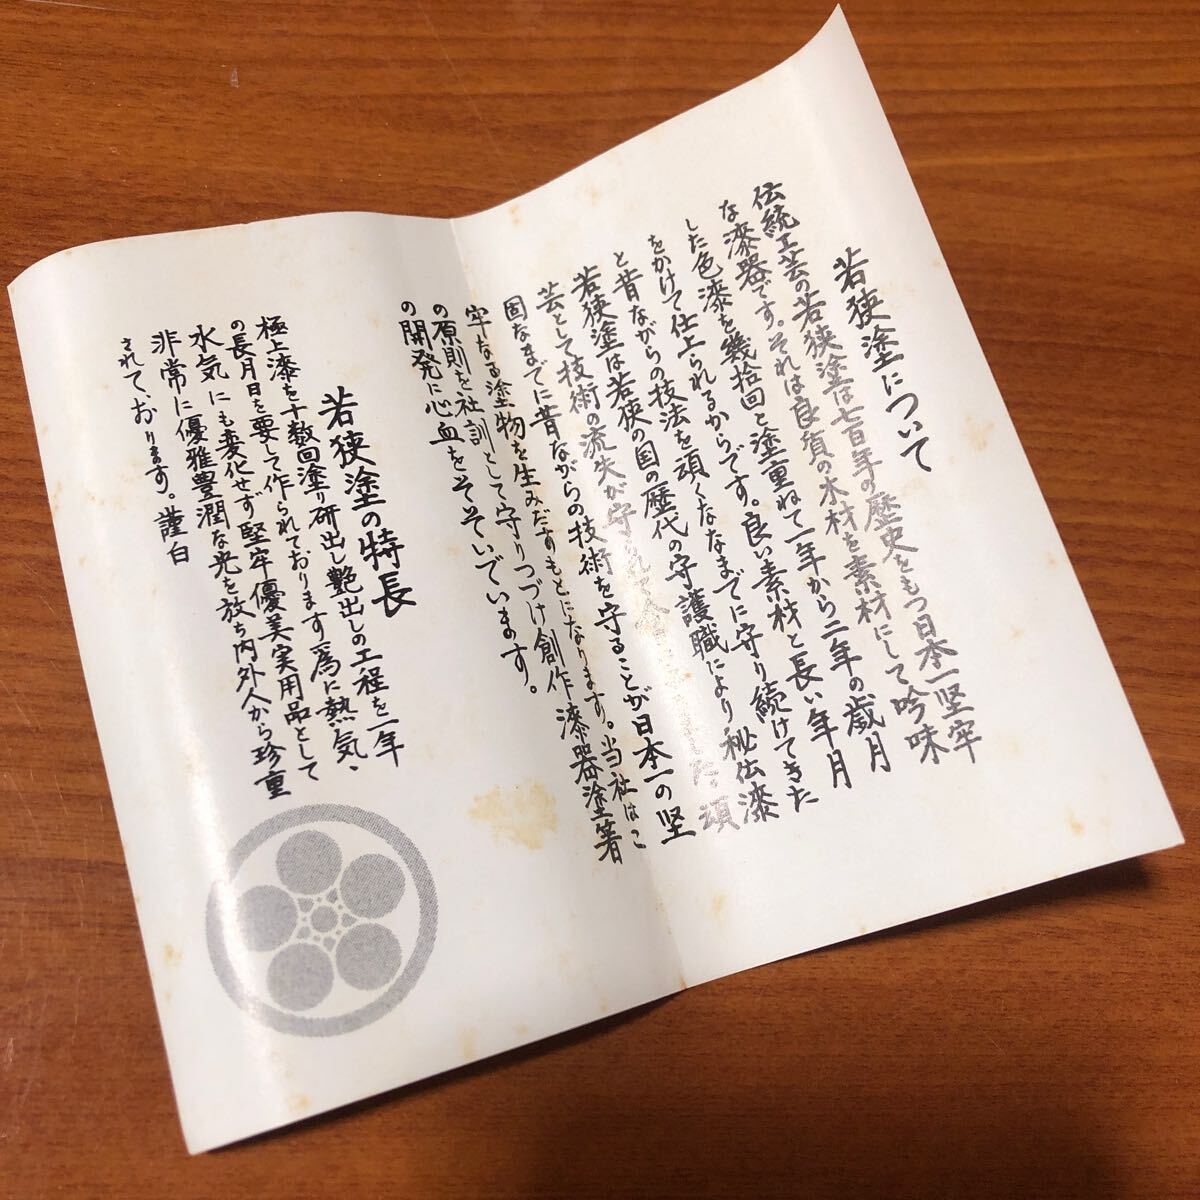 若狭塗について
伝統工芸の若狭塗は七百年の歴史をもつ日本一堅牢
な漆器です。それは良質の木材を素材にして吟味
した色漆を幾拾回と塗重ねて一年から二年の歳月
をかけて仕上られるからです。良い素材と長い年月
と昔ながらの技法を頑くななまでに守り続けてきた
若狭塗は若狭の国の歴代の守護職により秘伝漆
芸として技術の流失が守られて
頑
固なまでに昔ながらの技術を守ることが日本一の堅
牢なる塗物を生みだすもとになります。当社はこ
の原則を社訓として守りつづけ創作漆器塗箸
の開発に心血をそそいでいます。
若狭塗の特長
極上漆を十数回塗り研出し艶出しの工程を一年
の長月日を要して作られております為に熱気、
水気にも変化せず堅牢優美実用品として
非常に優雅豊潤な光を放ち内外人から珍重
されております。謹白